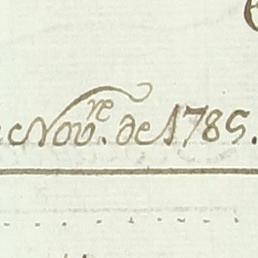 Nov.re de 1785.